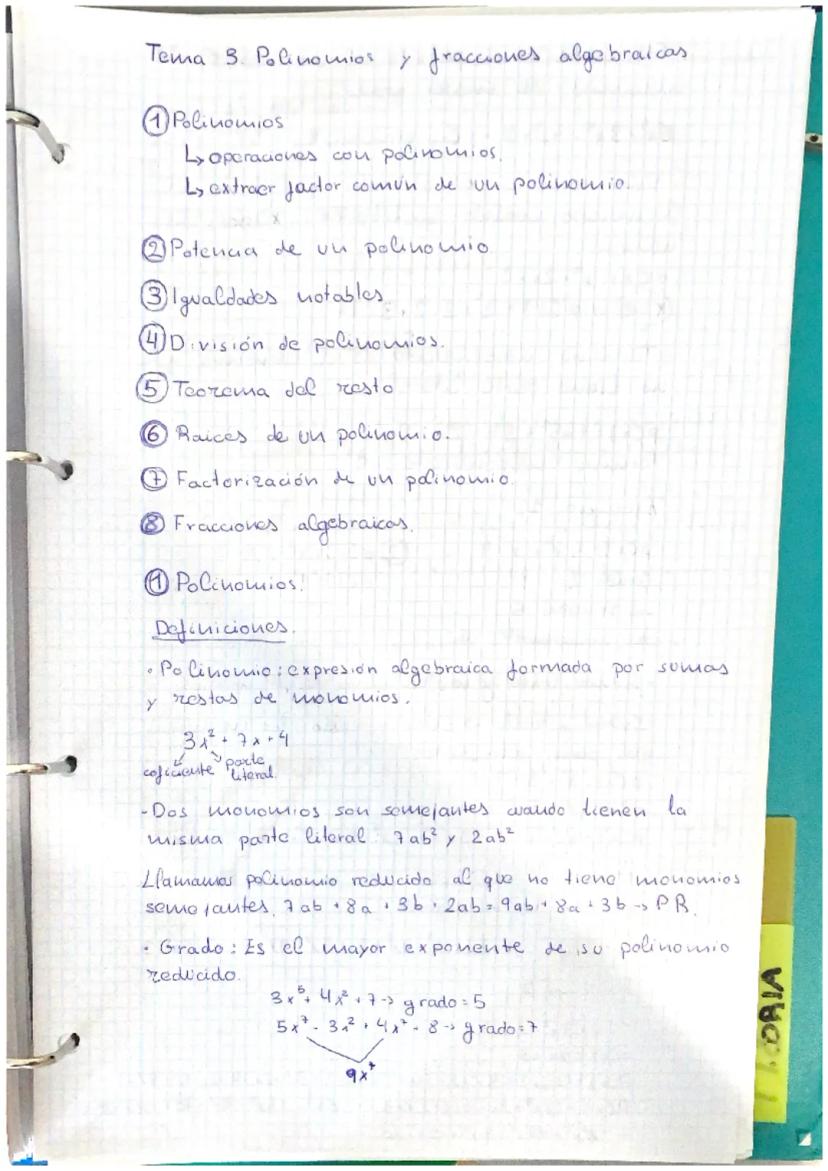 Tema 3. Polinomios y fracciones algebraicas
① Polinomios
↳ operaciones con polinomios.
↳ extraer factor común de un polinomio.
② Potencia de un polinomio
③ Igualdades notables
④ División de polinomios.
⑤ Teorema del resto
⑥ Raíces de un polinomio.
⑦ Factorización de un polinomio.
⑧ Fracciones algebraicas.
① Polinomios.
Definiciones.
· Polinomio: expresión algebraica formada por sumas
y restas de monomios.
3x² + 7x + 4
coficiente parte
literal
-Dos monomios son semejantes cuando tienen la
misma parte literal 7ab² y 2ab²
Llamamos polinomio reducido al que no tiene monomios
semejantes. 7ab + 8a + 3b + 2ab = 9ab + 8a + 3b → PR.
· Grado: Es el mayor exponente de su polinomio
reducido.
3x⁵ + 4x² + 7 → grado = 5
5x⁷ - 3x² + 4x⁷ - 8 → grado = 7
9x⁷